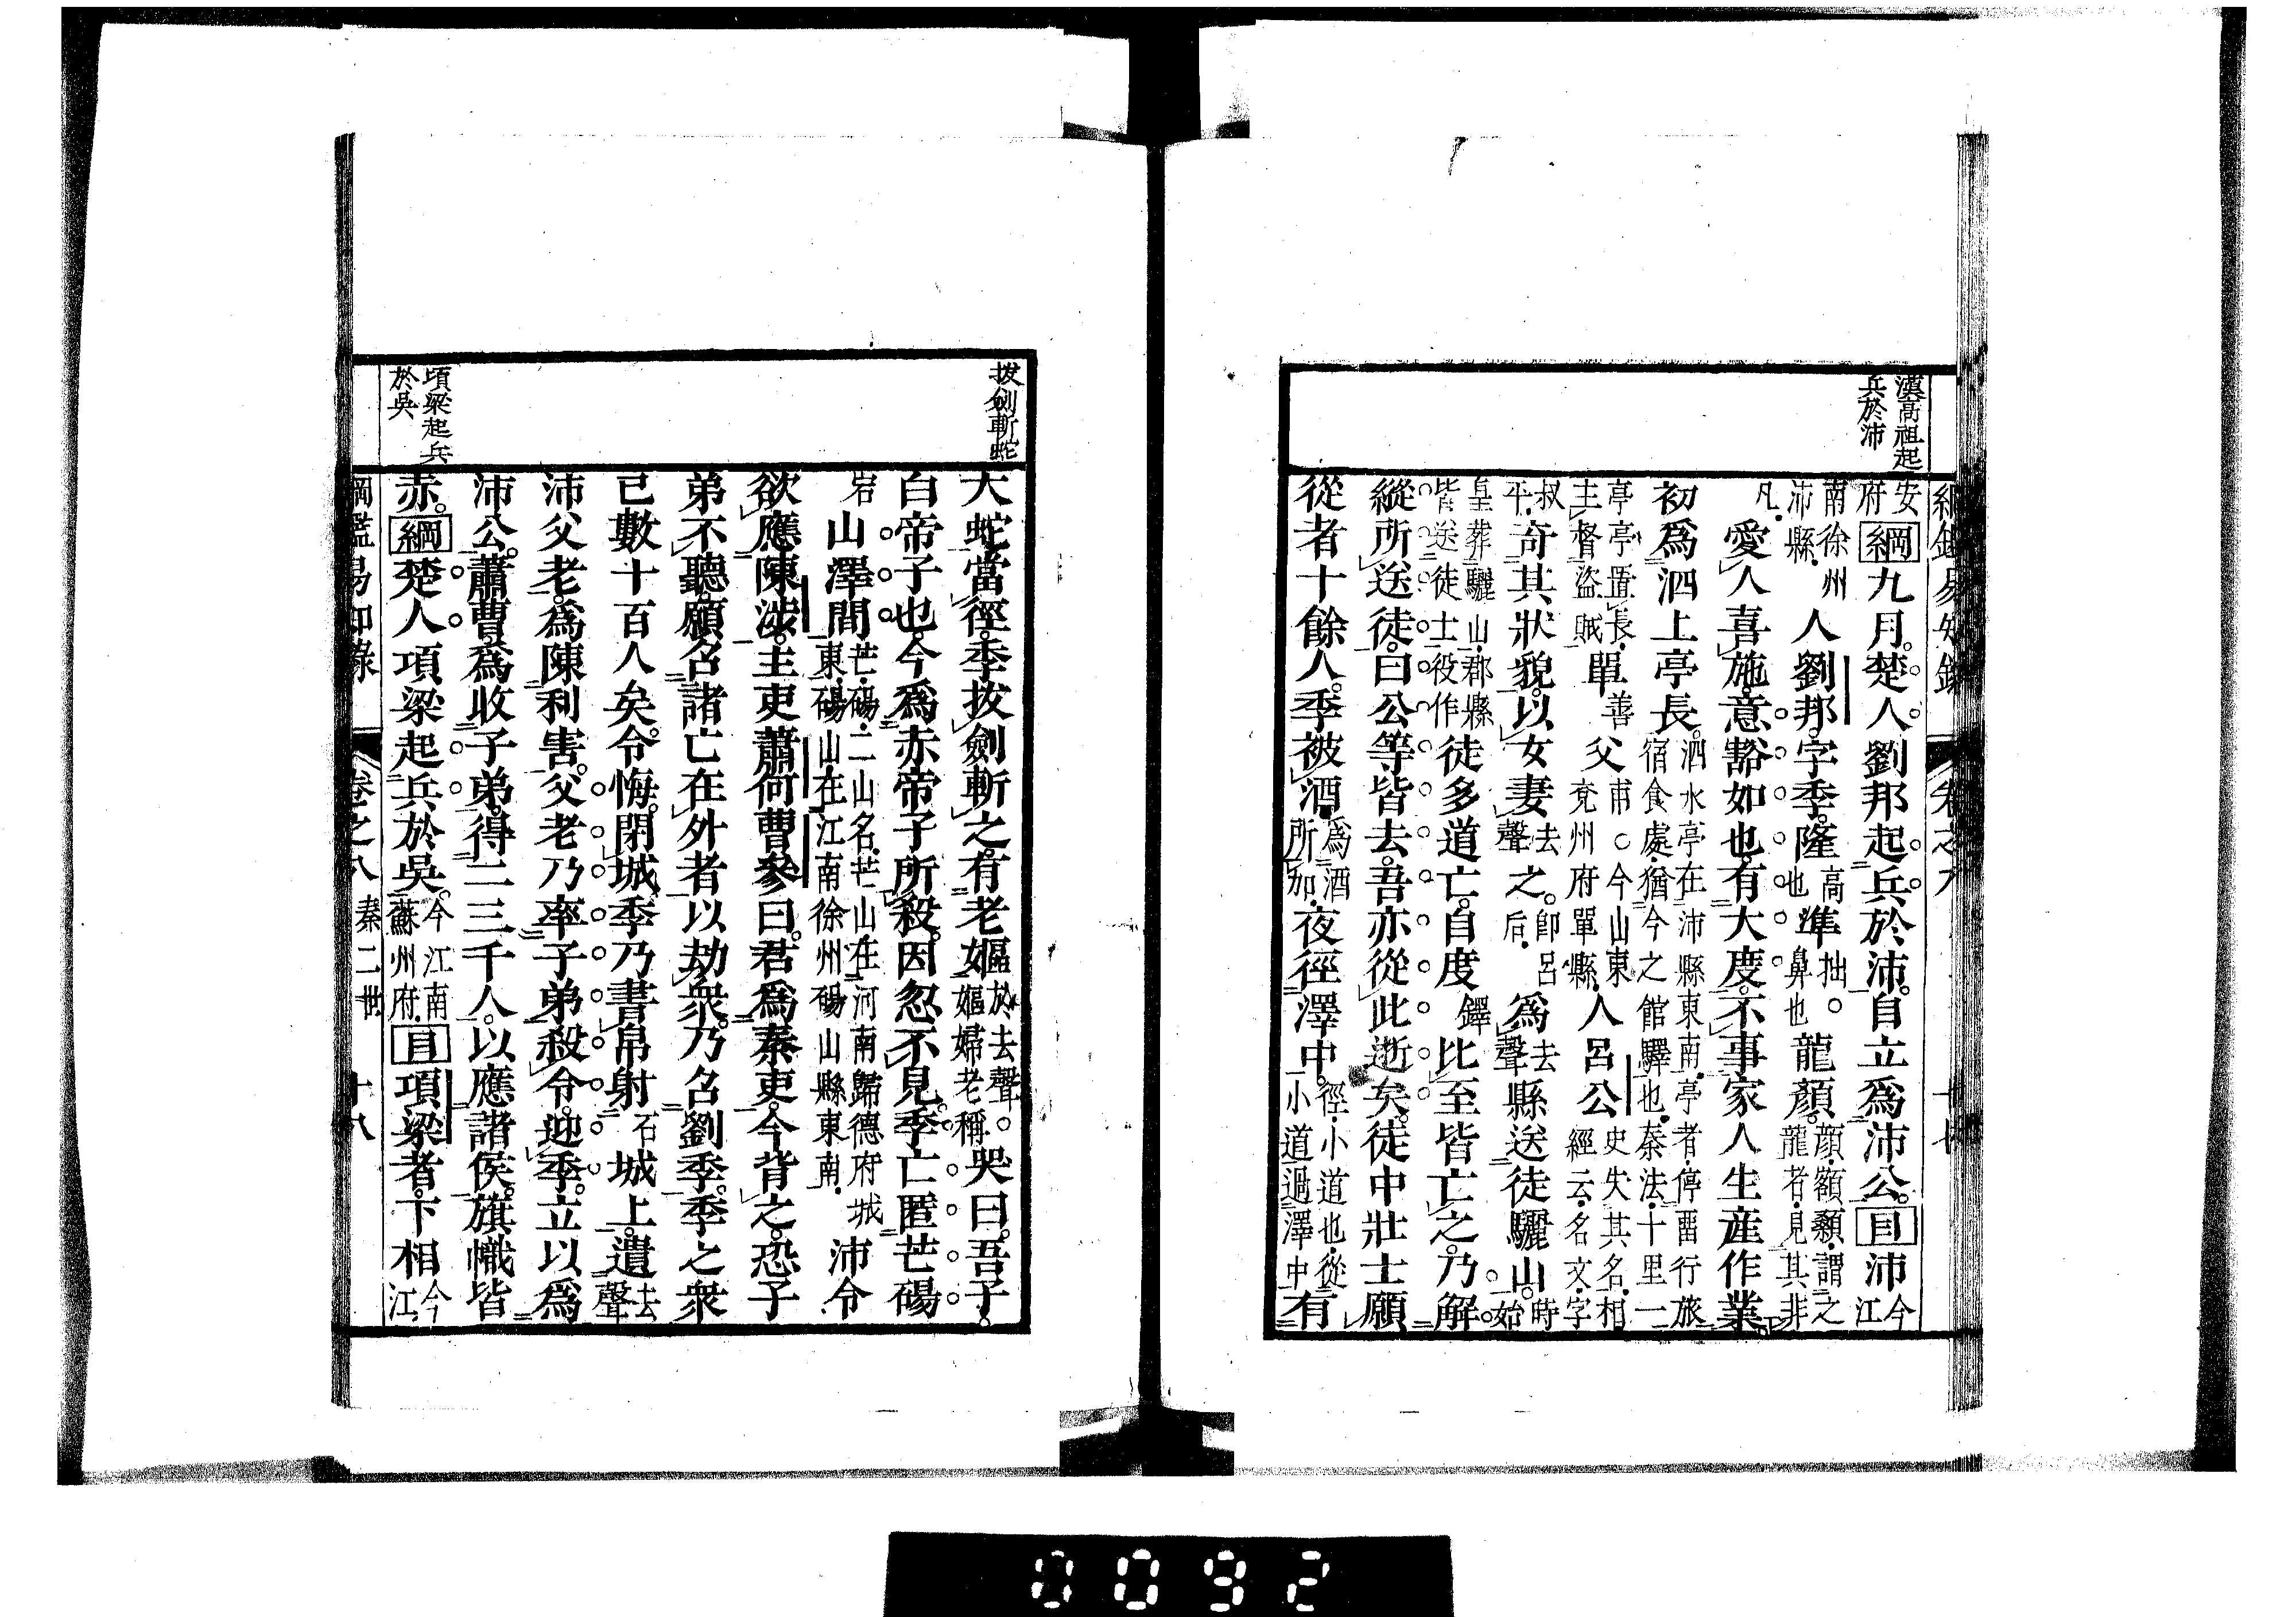 漢高祖起
兵於沛
安府綱九月。楚人劉邦起兵於沛。自立爲沛公。目沛今江
南徐州沛縣人劉邦。字季。隆高也準拙。鼻也龍顏。顏。額顙。謂之龍者。見其非
凡。愛人喜施。意豁如也。有大度。不事家人生產作業
初爲泗上亭長。泗水亭在沛縣東南。亭者。停畱行旅宿食處。猶今之館驛也。秦法。十里一
亭。亭置長。主督盜賊單善父甫。今山東兗州府單縣。人呂公史失其名。相經云。名文。字
叔平。奇其狀貌。以女妻去聲之。卽呂后。爲去聲縣送徒驪山。時始
皇葬驪山。郡縣皆送徒士役作徒多道亡。自度鐸比至皆亡之。乃解
縱所送徒。曰公等皆去。吾亦從此逝矣。徒中壯士願
從者十餘人。季被酒。爲酒所加。夜徑澤中。徑。小道也。從小道過澤中有
拔劍斬蛇
大蛇當徑。季拔劍斬之。有老嫗於去聲。嫗婦老稱。哭曰。吾子。
白帝子也。今爲赤帝子所殺。因忽不見。季亡匿芒碭
宕山澤間芒。碭。二山名。芒山。在河南歸德府城東。碭山在江南徐州碭山縣東南。沛令
欲應陳涉。主吏蕭何曹參曰。君爲秦吏。今背之。恐子
弟不聽。願召諸亡在外者以劫衆。乃召劉季。季之衆
已數十百人矣。令悔。閉城。季乃書帛射石城上。遺去聲
沛父老。爲陳利害。父老乃率子弟殺令。迎季。立以爲
沛公。蕭曹爲收子弟。得二三千人。以應諸侯。旗幟皆
項梁起兵
於吳
赤。綱楚人項梁起兵於吳。今江南蘇州府。目項梁者。下相今江
綱鑑易知錄 卷之八 秦二世 十八
0092